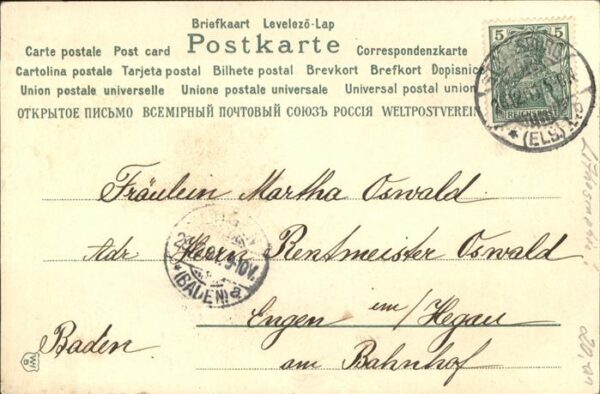 Briefkaart Levelező-Lap
Carte postale Post card Postkarte Correspondenzkarte
Cartolina postale Tarjeta postal Bilhete postal Brevkort Brefkort Dopisnice
Union postale universelle Unione postale universale Universal postal union
ОТКРЫТОЕ ПИСЬМО ВСЕМІРНЫЙ ПОЧТОВЫЙ СОЮЗЪ РОССІЯ WELTPOSTVEREIN
5 5
(ELS.)
Fräulein Martha Oswald
Adr Herrn Rentmeister Oswald
(BADEN)
Engen im/Hegau
Baden am Bahnhof